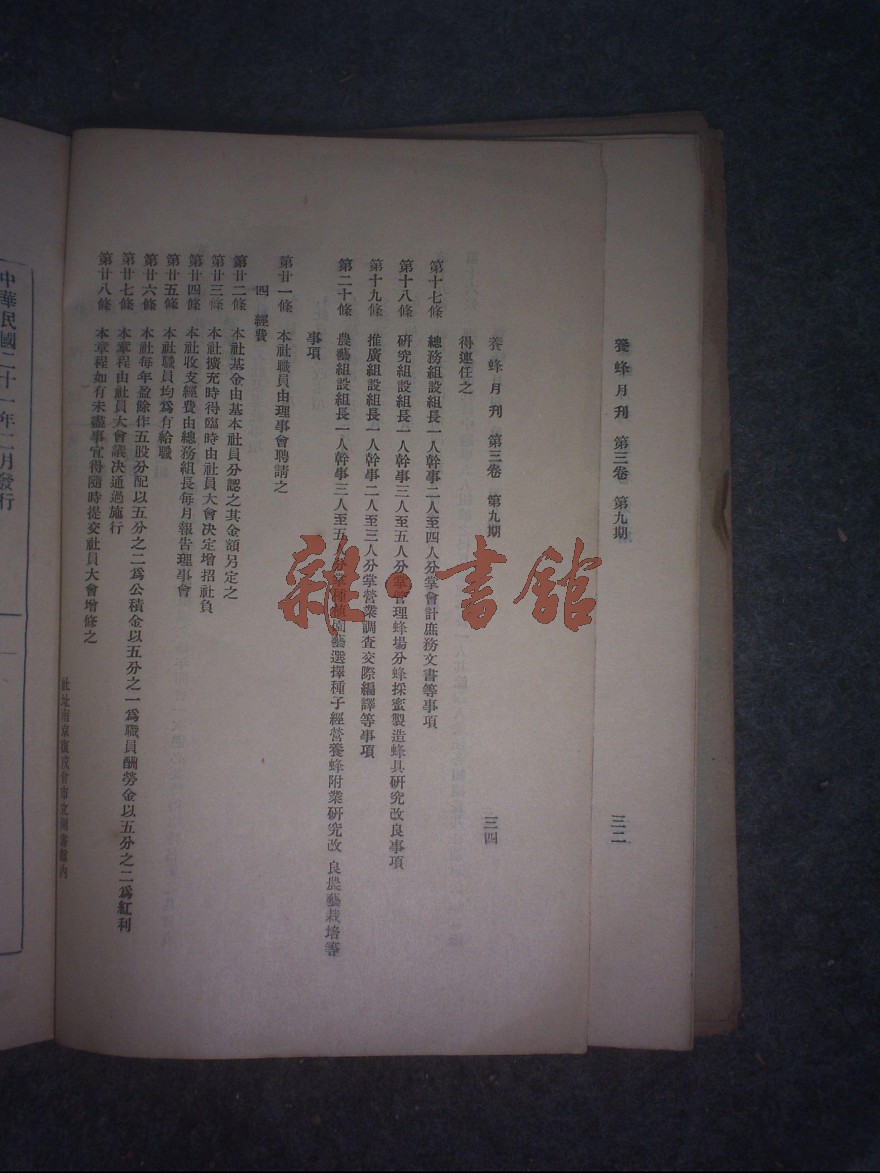 養蜂月刊 第三卷 第九期 三二
養蜂月刊 第三卷 第九期 三四
得連任之
第十七條 總務組設組長一人幹事二人至四人分掌會計庶務文書等事項
第十八條 研究組設組長一人幹事三人至五人分掌管理蜂場分蜂採蜜製造蜂具研究改良事項
第十九條 推廣組設組長一人幹事二人至三人分掌營業調查交際編譯等事項
第二十條 農藝組設組長一人幹事三人至五人分掌種植園藝選擇種子經營養蜂附業研究改良農藝栽培等
事項
第廿一條 本社職員由理事會聘請之
四 經費
第廿二條 本社基金由基本社員分認之其金額另定之
第廿三條 本社擴充時得臨時由社員大會決定增招社負
第廿四條 本社收支經費由總務組長每月報告理事會
第廿五條 本社職員均爲有給職
第廿六條 本社每年盈餘作五股分配以五分之二爲公積金以五分之一爲職員酬勞金以五分之二爲紅利
第廿七條 本章程由社員大會議决通過施行
第廿八條 本章程如有未盡事宜得隨時提交社員大會增修之
社址南京
內
中華民國二十一年二月發行
雜·書館